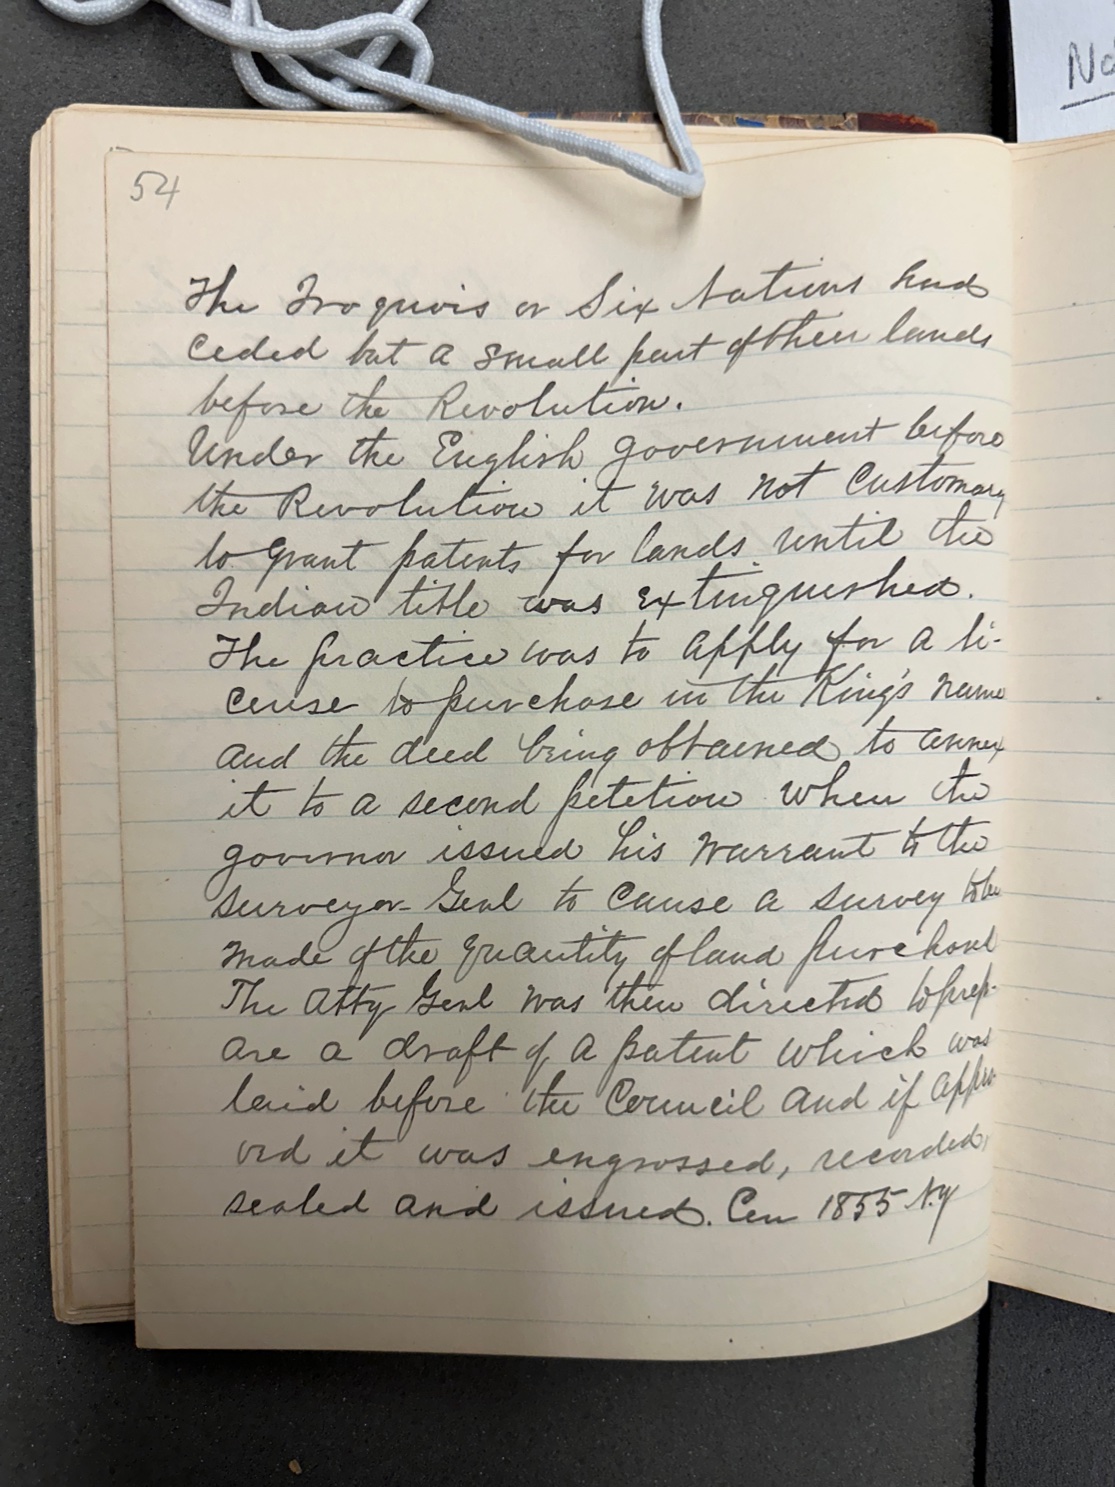 54
The Iroquois or Six Nations had
ceded but a small part of their lands
before the Revolution.
Under the English government before
the Revolution it was not customary
to grant patents for lands until the
Indian title was extinguished.
The practice was to apply for a li-
cense to purchase in the King's name
and the deed being obtained to annex
it to a second petition when the
governor issued his warrant to the
surveyor Genl to cause a survey to be
made of the quantity of land purchased
The Atty Genl was then directed to prep-
are a draft of a patent which was
laid before the Council and if appro
ved it was engrossed, recorded,
sealed and issued. Cen 1855 N.Y
No